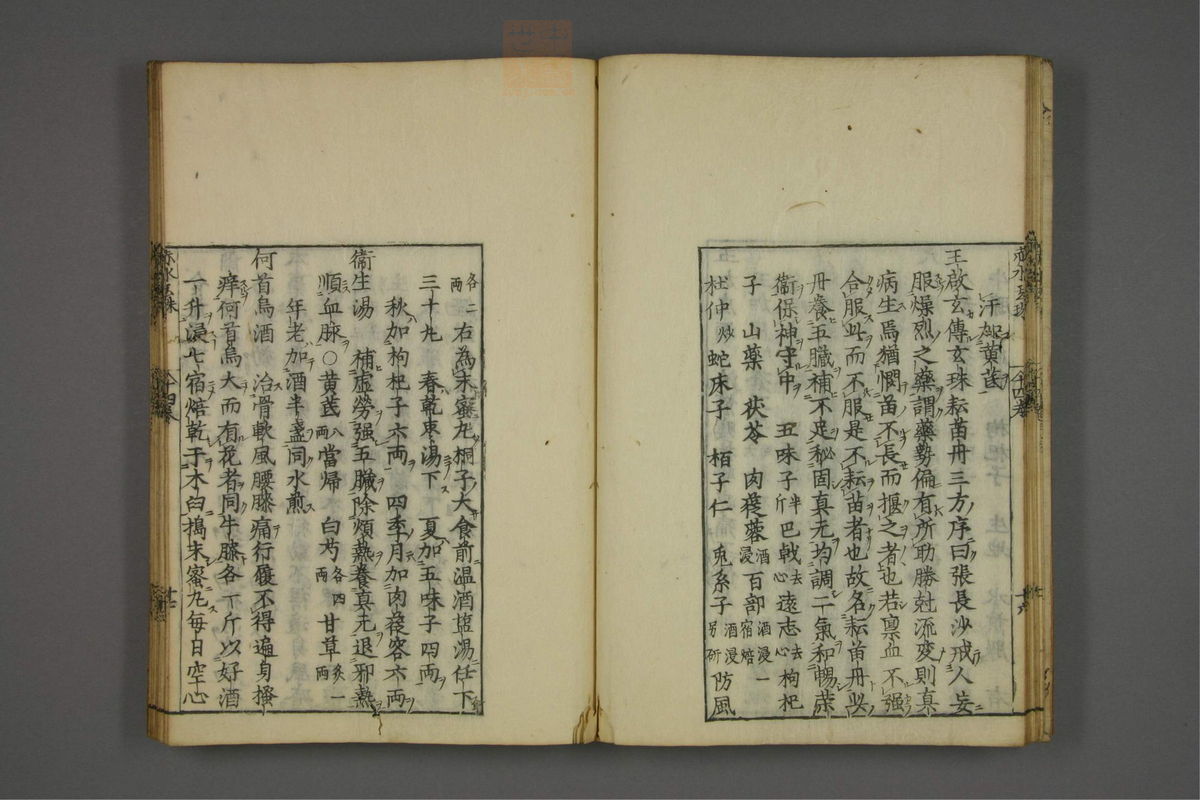 汗加黄芪
王啟玄傳玄珠耘苗丹三方序曰張長沙戒人妄
服燥烈之藥謂藥勢偏有所助勝尅流変則真
病生焉猶憫苗不長而揠之者也若禀血不强
合服此而不服是不耘苗者也故名耘苗丹此
丹養五臟補不足秘固真元均調二氣和暢荣
衞保神守中 五味子半斤巴戟去心遠志去心枸杞
子 山藥 茯苓 肉蓯蓉酒浸百部酒浸一宿焙
杜仲炒蛇床子 栢子仁 兎糸子酒浸另研防風
各二兩右為末蜜丸桐子大食前温酒塩湯任下
三十丸 春乾棗湯下 夏加五味子四兩
秋加枸杞子六兩 四季月加肉蓯容六兩
衞生湯 補虚勞强五臟除煩熱養真元退邪熱
順血脉○黄芪八兩當歸 白芍各四兩甘草炙一兩
年老加酒半盞同水煎
何首烏酒 治骨軟風腰膝痛行履不得遍身搔
痒何首烏大而有花者同牛膝各一斤以好酒
一升浸七宿焙乾于木臼搗末蜜丸每日空心